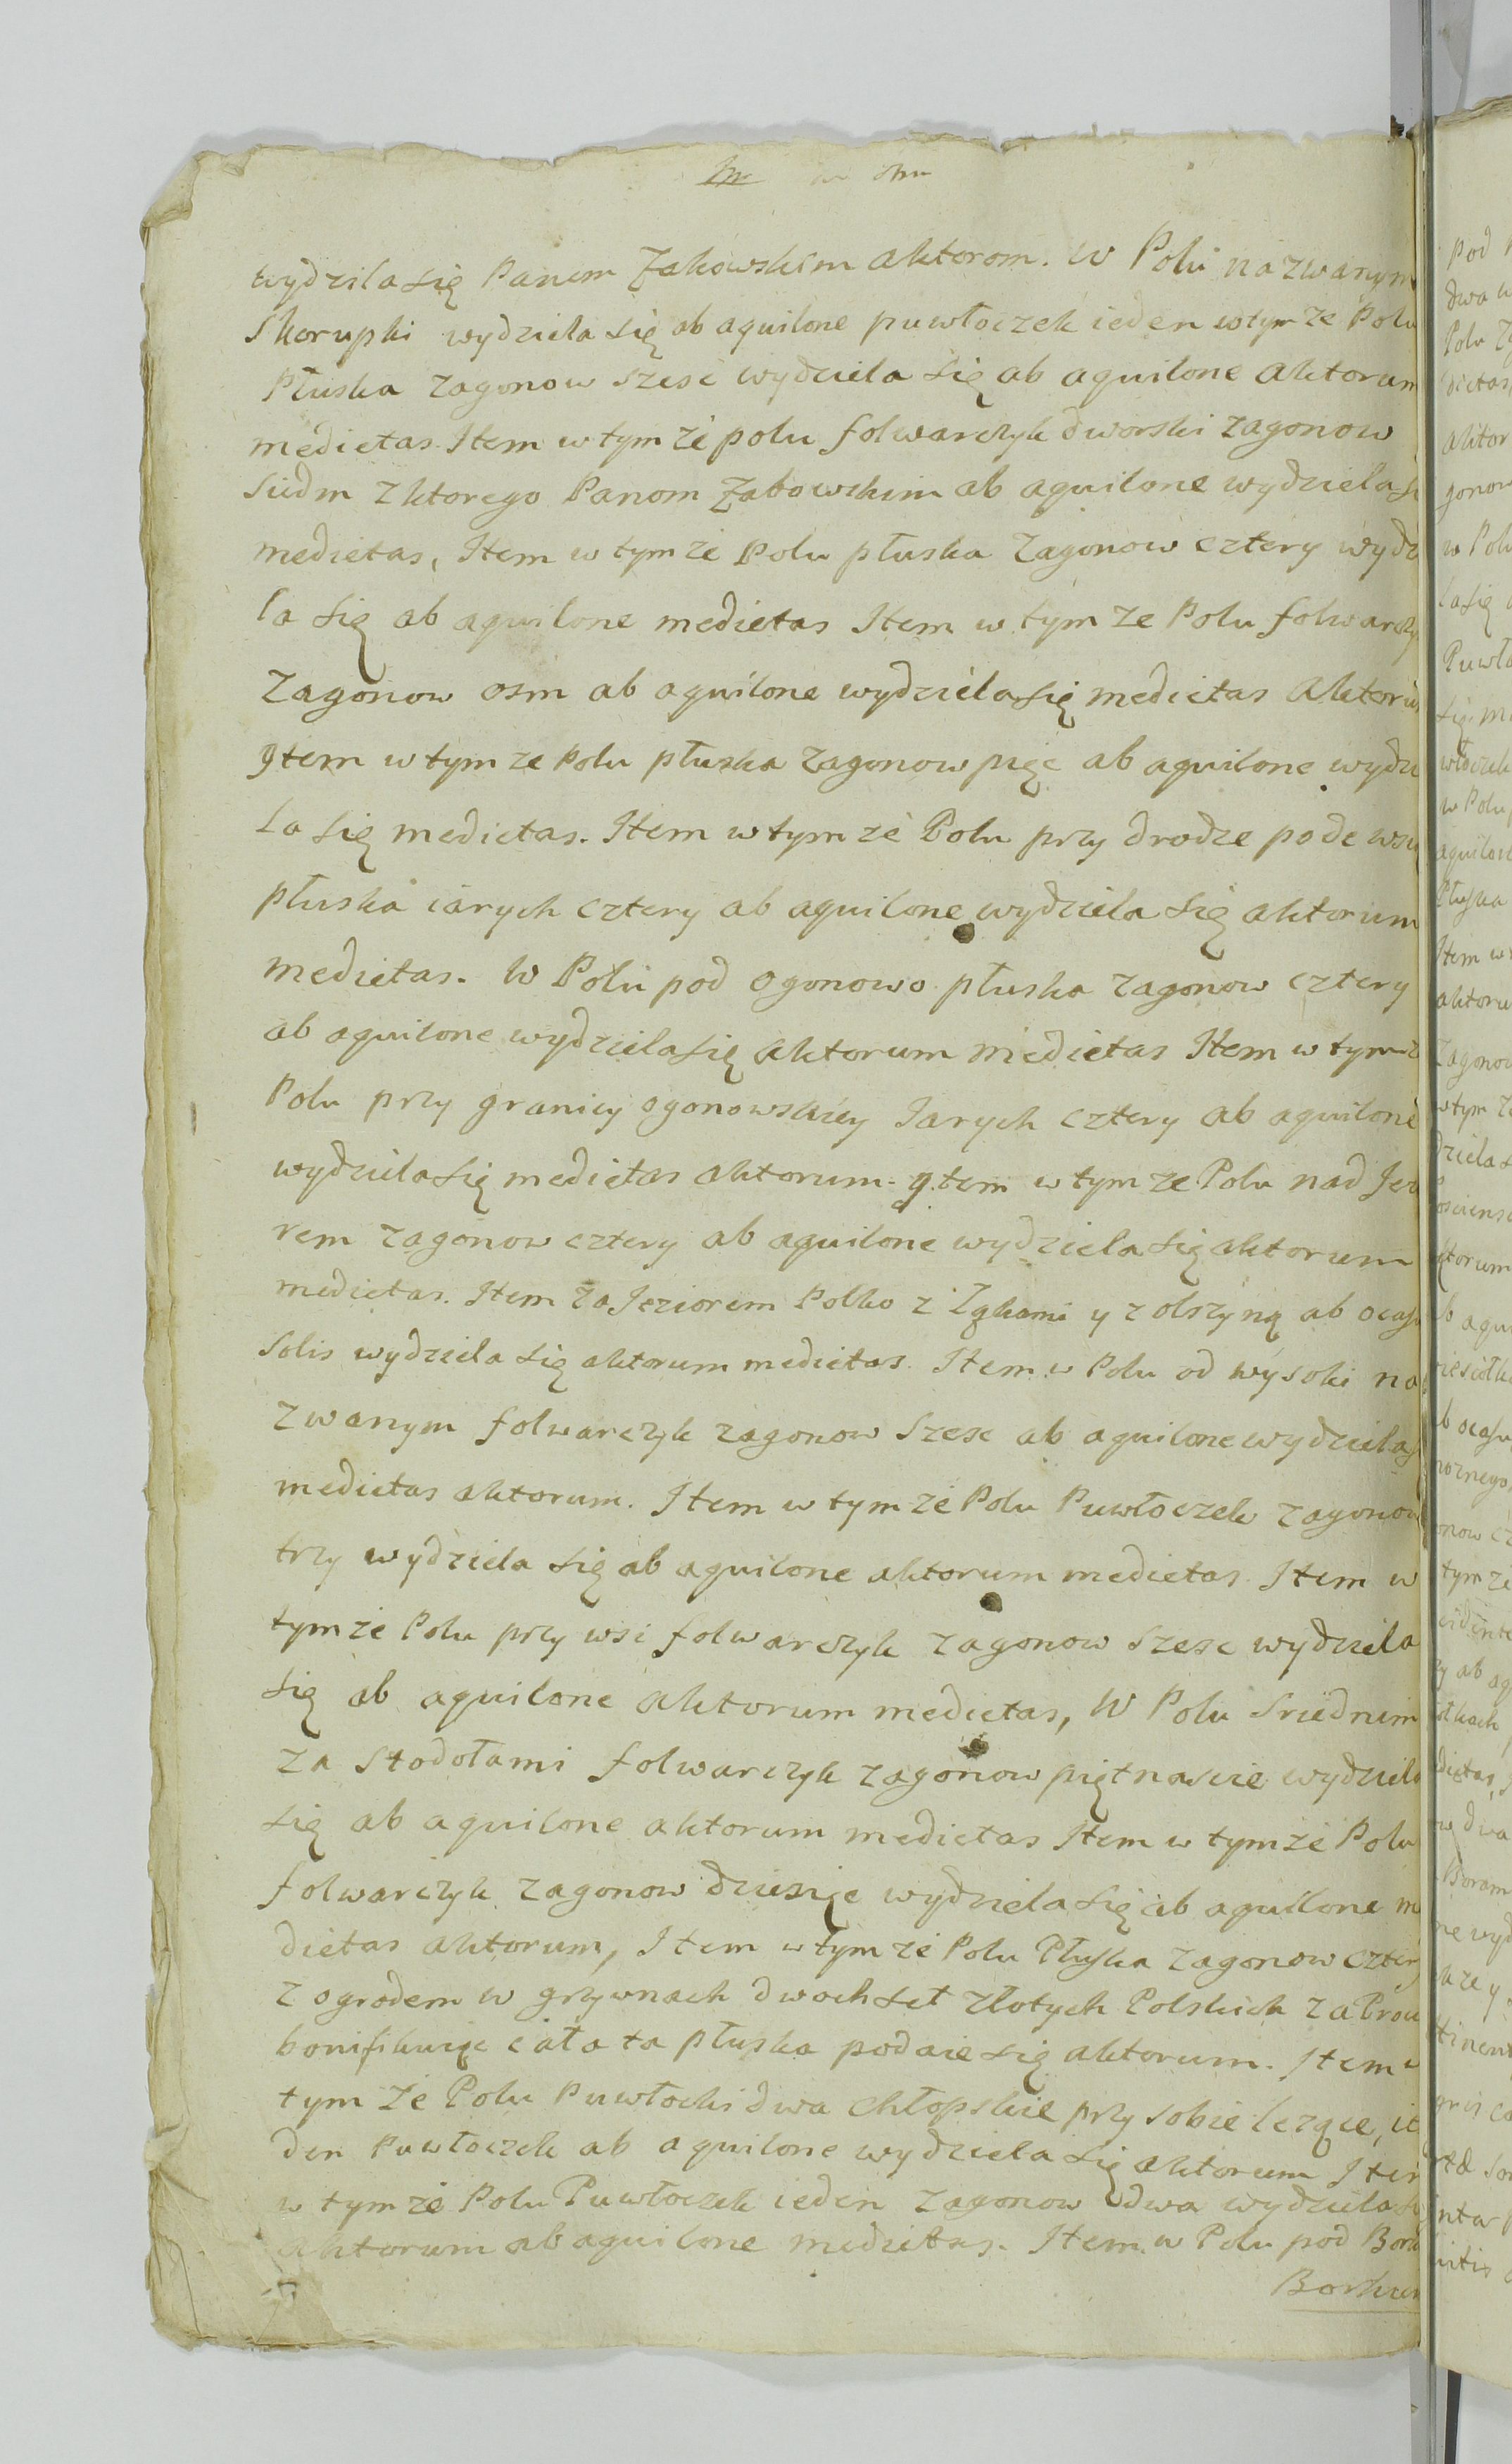 wydziela się Panem Zakowskim aktorom. W Polu nazwanym
Skorupki wydziela się ab aquilone puwłoczek ieden w tym ze Polu
Płuska zagonow szesc wydziela się ab aquilone aktorum
medietas. Item w tym ze polu folwarczyk dworski zagonow
siedm z ktorego Panom Zabowskim ab aquilone wydziela si
medietas, Item w tym ze Polu płuska zagonow cztery wydz
la się ab aquilone medietas Item w tym ze Polu folwarczy
zagonow osm ab aquilone wydziela się medietas aktoru
Item w tym ze Polu płuska zagonow pięc ab aquilone wydzi
la się medietas. Item w tym ze Polu przy drodze pode wsią
płuska iarych cztery ab aquilone wydziela się aktorum
medietas. W Polu pod Ogonowo płuska zagonow cztery
ab aquilone wydziela się aktorum medietas Item w tym z
Polu przy granicy ogonowskiey Iarych cztery ab aquilone
wydziela się medietas aktorum. Item w tym ze Polu nad Jezi
rem zagonow cztery ab aquilone wydziela się aktorum
medietas. Item za Jeziorem Polko z Łąkami y z olszyną ab ocasu
Solis wydziela się aktorum medietas. Item w Polu od wysoki na
zwanym folwarczyk zagonow szesc ab aquilone wydziela
medietas aktorum. Item w tym ze Polu Puwłoczek zagonow
trzy wydziela się ab aquilone aktorum medietas. Item w
tym ze Polu przy wsi folwarczyk zagonow szesc wydziela
się ab aquilone aktorum medietas, W Polu sriednim
za stodołami folwarczyk zagonow piętnascie wydziela
się ab aquilone aktorum medietas Item w tym ze Polu
folwarczyk zagonow dziesięc wydziela się ab aquilone m
dietas aktorum, Item w tym ze Polu Płuska zagonow cztery
z ogrodem w grzywnach dwochset złotych Polskich za Prou
bonifikuiąc cała ta płuska podaie się aktorum. Item w
tym ze Polu Puwłocki dwa chłopskie przy sobie lezące, ie
den Puwłoczek ab aquilone wydziela się aktorum Item
w tym ze Polu Puwłoczek ieden zagonow dwa wydziela si
aktorum ab aquilone medietas. Item w Polu pod Bork
Borkiem